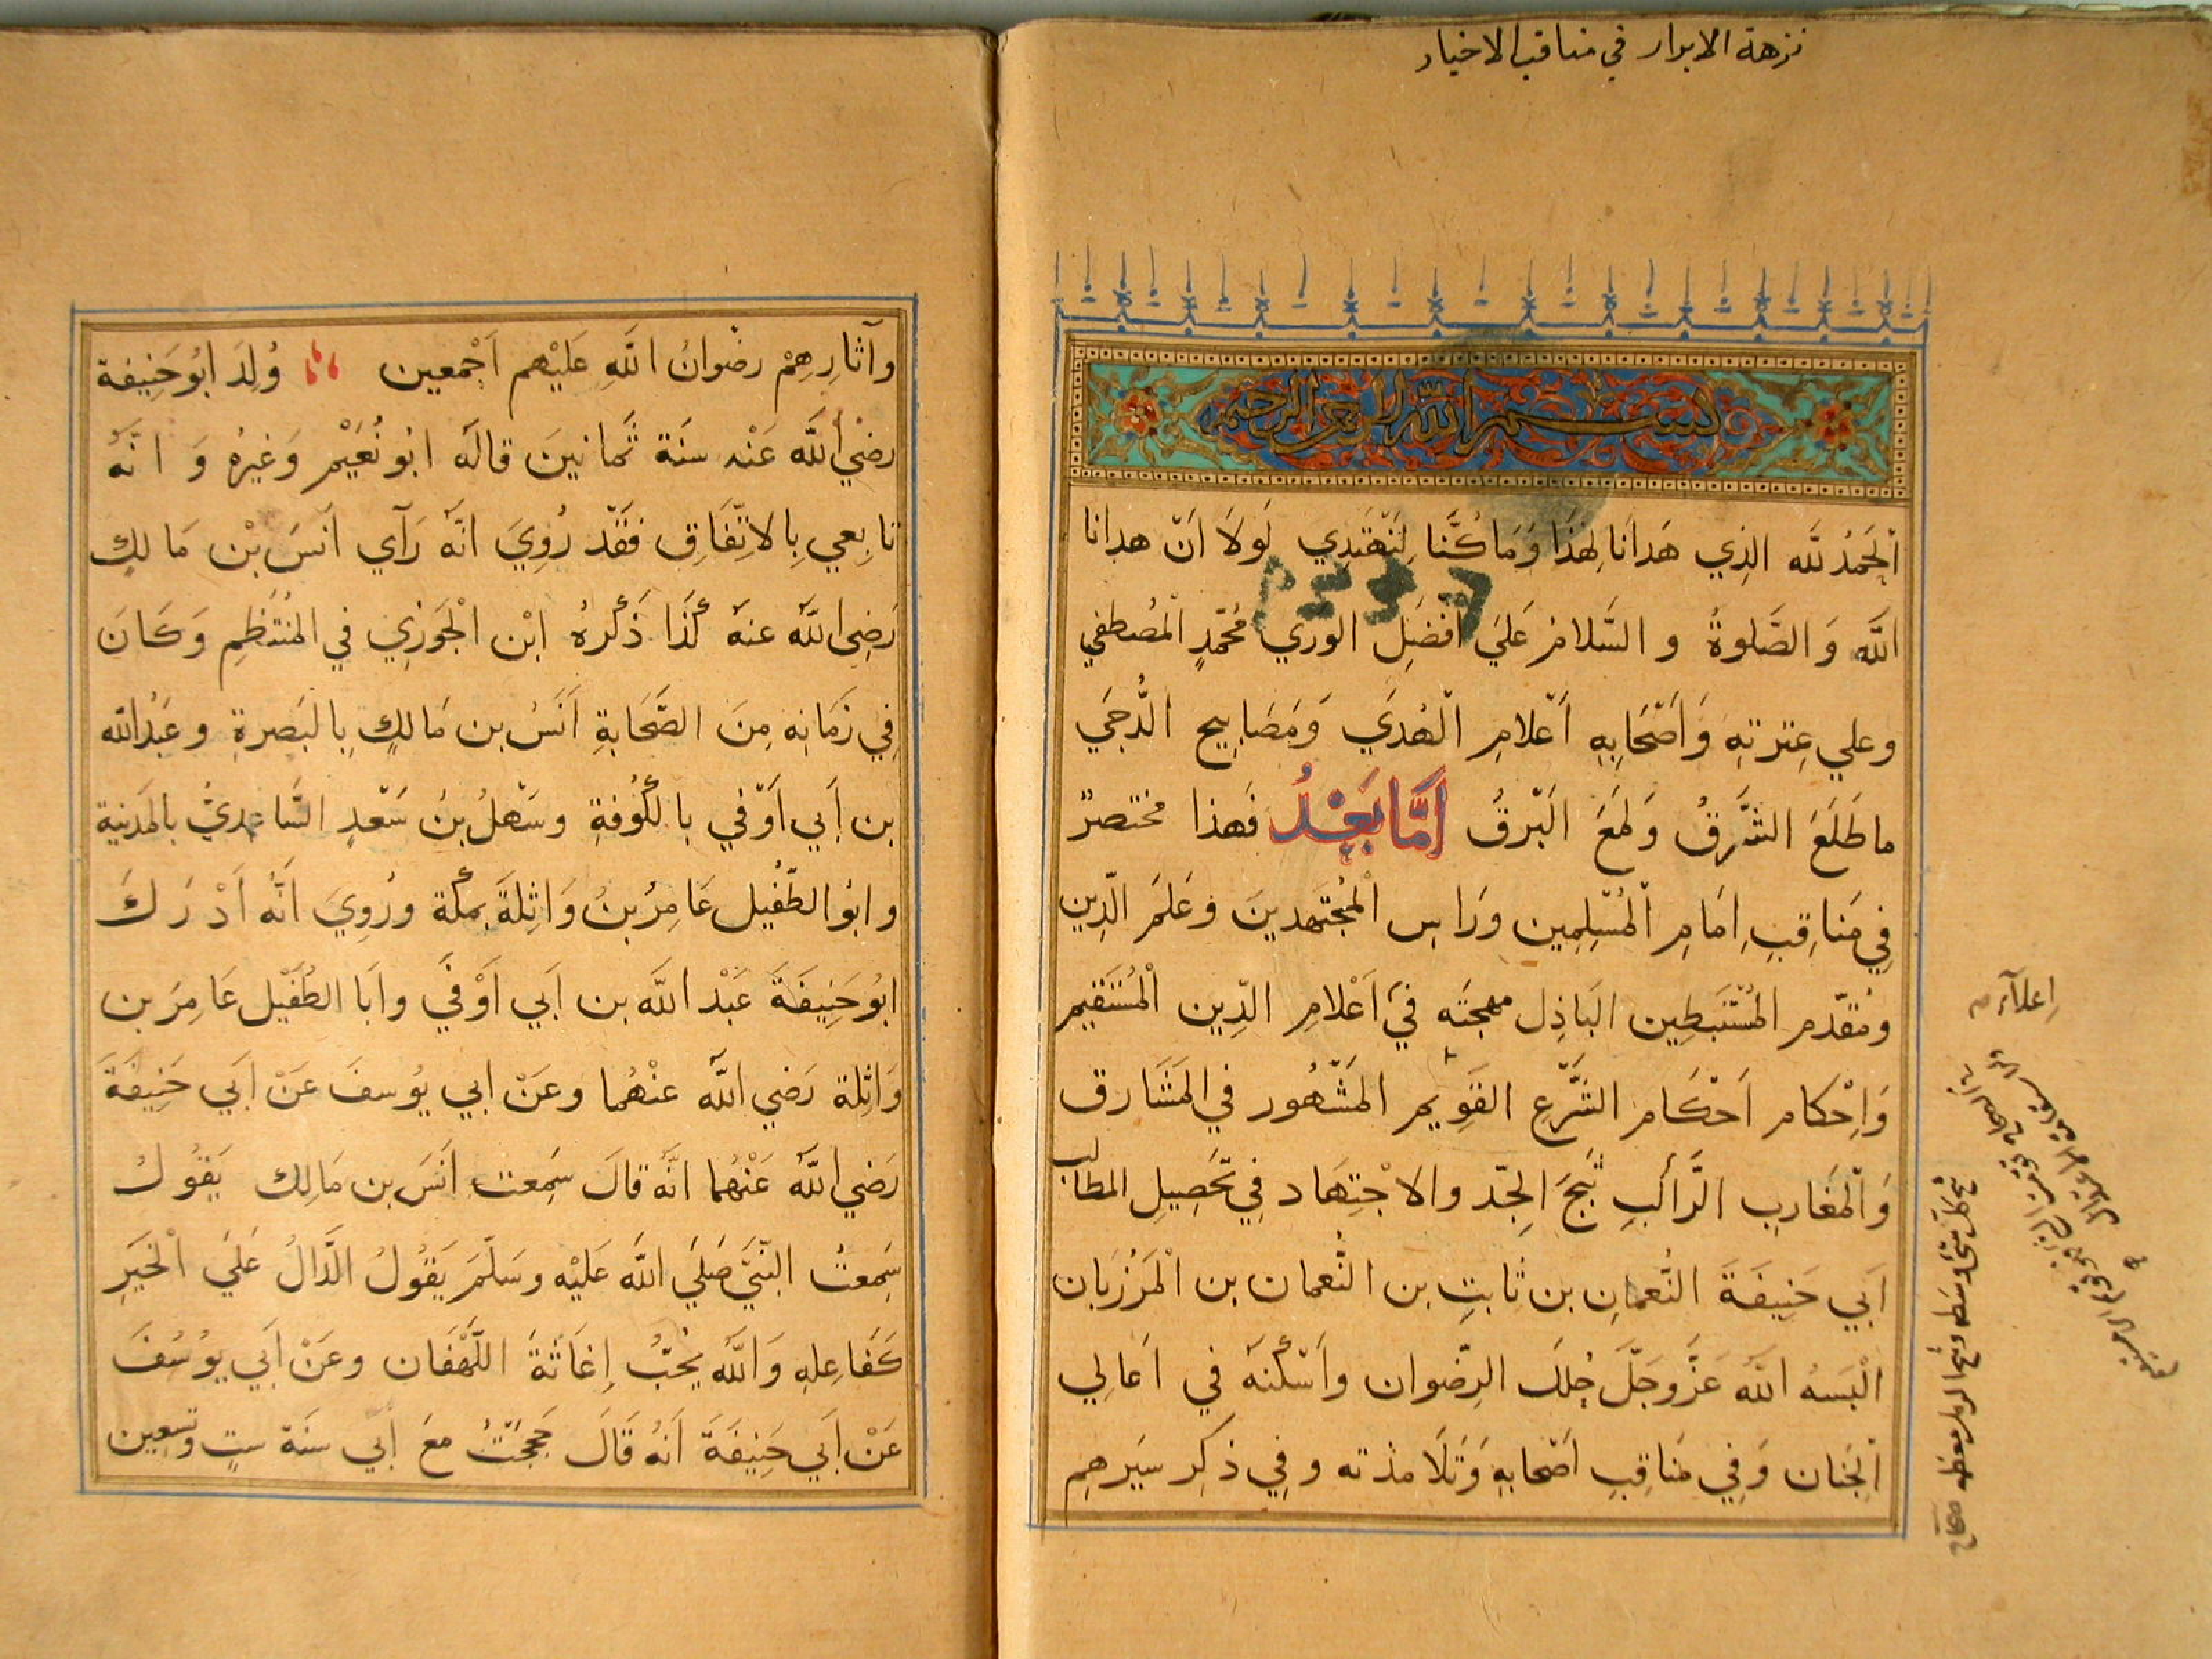 نزهة الابرار في مناقب الاخيار
بسم الله الرحمن الرحيم
اَلْحَمْدُ لله الذِي هَدَانَا لِهٰذَا وَمَا كُنَّا لِنَهْتَدِي لَولَا اَنْ هدانا
اللَّه وَ الصَّلوةُ و السَّلامُ عَلَي اَفْضَلِ الوري مُحَمَّدٍ الْمُصطفي
وعلي عِتْرتِهِ وَاَصْحَابِهِ اَعْلامِ الْهُدَي وَمَصَابِيحِ الدُّجَي
ما طَلَعَ الشَّرقُ وَلمَعَ الَبْرقُ اَمَّا بَعْدُ فَهذا مختصرٌ
فِي مَناقِبِ اِمَامِ الْمُسْلِمِين وَرَاسِ الْمُجْتَهدينَ وَعَلَمَ الدِّين
ومُقدّم المُسْتَنبَطِين البَاذِل مهجَتَه فيَ اَعْلامِ الدِّين الْمُسْتَقيم
وَاِحْكام اَحْكَام الشَّرعِ القَوِيم المَشْهُور فِي المَشَارق
وَالْمغَاربِ الرَّاكبِ ثَبَجَ الجِدّ والاجْتِهَاد فِي تَحَصِيلِ المطالب
اَبِي حَنِيفَةَ النُّعمانِ بن ثابتٍ بن النُّعمان بن الْمَرْزُبَان
الْبَسهُ اللَّه عَزَّوجَلَّ حُللَ الرِّضوان واَسْكنهُ في اَعَالِي
الْجَنان وَفِي مَناقِبِ اَصْحابهِ وَتَلَامذته وفِي ذكِر سيَرهِم
اِعلاَء صح
وآثارِهِمْ رضْوانُ اللَّهِ عَلَيْهم اَجْمعين وُلِدَ ابُوحَنِيفة
رضيْ اللَّه عَنْه سنَة ثمانينَ قالَه ابُو نُعَيْم وَغيرُه وَ انّهُ
تابِعي بِالاتِّفَاقِ فقَدْ رُوِيَ انَّهُ رَآي اَنَسَ بْن مَالكٍ
رَضِي اللَّه عنه كَذَا ذَكرهُ ابْن الْجَوزي في المُنْتَظِم وَكَانَ
فِي زَمَانه مِنَ الصَّحَابةِ اَنَسُ بن مَالكٍ بِالبَصرةِ وعَبْدالله
بن اَبي اَوْفي بالكُوفةِ وسَهْلُ بنُ سَعْدٍ السَّاعِديُّ بالمَدينة
وابُو الطُّفَيل عَامِرُ بنُ وَاثِلَةَ بمكة ورُوِيَ اَنَّهُ اَدْرَكَ
ابُوحَنِيفَةَ عَبْدَ اللَّه بن اَبي اَوْفَي واَبَا الطُفَيْل عَامِرَ بن
وَاثِلة رَضي اللَّه عنْهُما وعَنْ ابي يُوسفَ عَنْ اَبي حَنِيفَةَ
رَضي اللَّه عَنْهُما انَّه قالَ سَمِعت اَنَسَ بن مَالِك يَقُولُ
سَمِعتُ النَّبيَّ صَلَي اللَّه عَلَيْه وسَلَّمَ يَقُولُ الدَّالُ عَلَي الْخَيرِ
كَفَاعِلهِ وَاللَّه يُحِبُّ اِغاثَةَ اللَّهْفَان وعَنْ اَبي يوُسُفَ
عَنْ اَبي حَنِيفَةَ اَنهُ قَالَ حَجَجْتُ معَ ابي سنَة ستٍ وتسعين